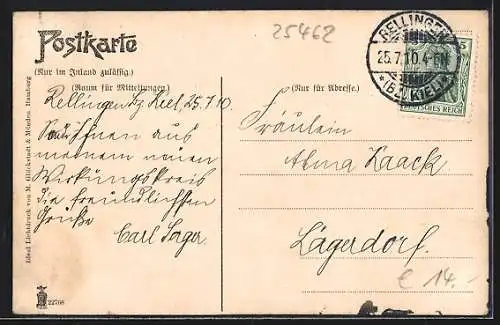 25462
Postkarte
(Nur im Inland zulässig.)
(Raum für Mitteilungen)
(Nur für Adresse.)
RELLINGEN
25.7.10.4-5N
*(BZ. KIEL)*
5
DEUTSCHES REICH
Rellingen Bz Kiel, 25.7.10.
Ihnen aus
meinem neuen
Wirkungskreis
die freundlichsten
Grüße
Carl Sager
Fräulein
Alma Kaack
Lägerdorf.
€ 14.-
Ideal Lichtdruck von M. Glückstadt & Münden, Hamburg
22768